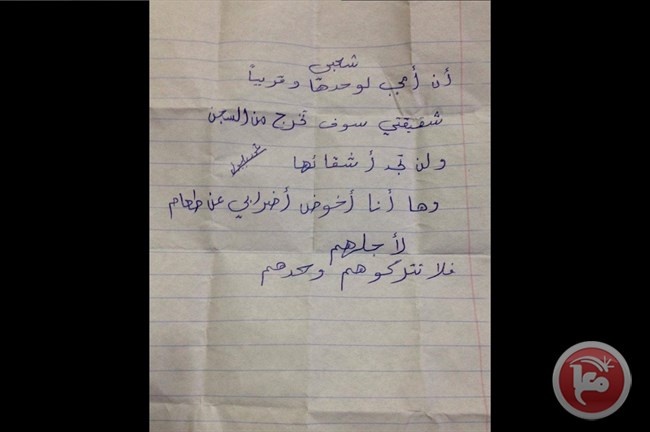 شعبي
أن أمي لوحدها وقريباً
شقيقتي سوف تخرج من السجن
ولن تجد أشقائها
وها أنا أخوض أضرابي عن طعام
لأجلهم
فلا تتركوهم وحدهم
معا